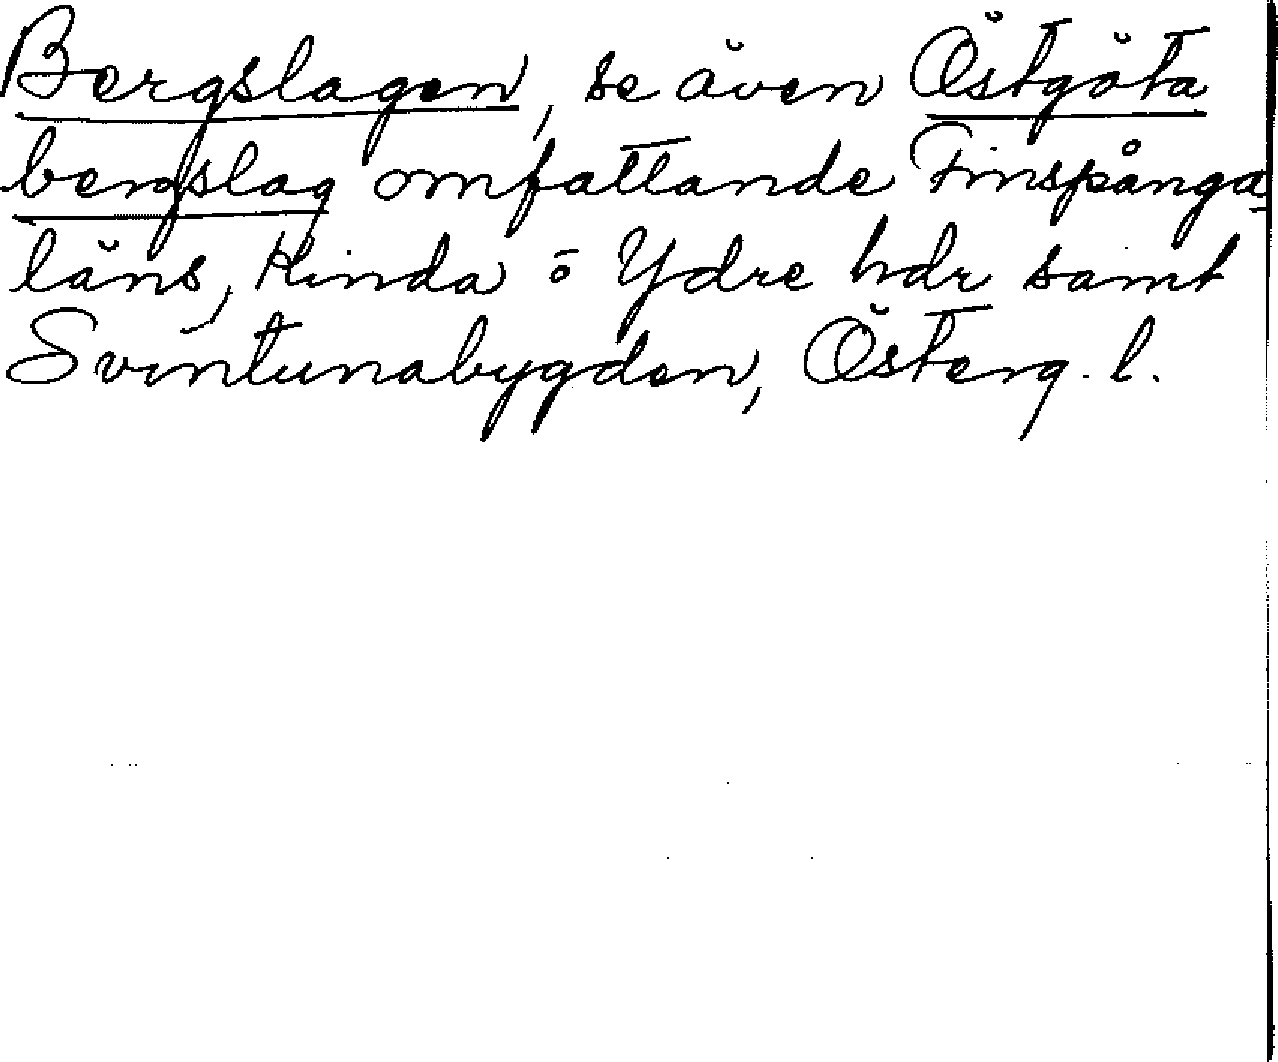 Bergslagen, se även Östgöta
bergslag omfattande Finspånga-
läns, Kinda o Ydre hdr samt
Svintunabygden, Österg. l.